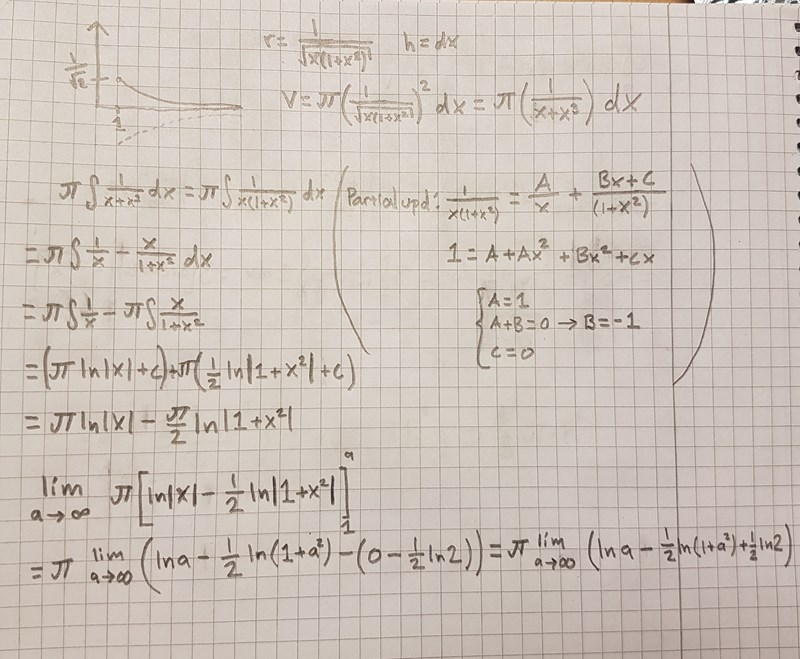 r = 1/√(x(1+x²)) h = dx
1/√2
V = π(1/√(x(1+x²)))² dx = π(1/(x+x³)) dx
1
π∫ 1/(x+x³) dx = π∫ 1/(x(1+x²)) dx
(Partialupd: 1/(x(1+x²)) = A/x + (Bx+C)/(1+x²)
1 = A+Ax² + Bx² + Cx
{A=1
A+B=0 → B=-1
C=0)
= π∫ 1/x - x/(1+x²) dx
= π∫ 1/x - π∫ x/(1+x²)
= (π ln|x| + C) + π(1/2 ln|1+x²| + C)
= π ln|x| - π/2 ln|1+x²|
lim a→∞ π[ln|x| - 1/2 ln|1+x²|]₁ᵃ
= π lim a→∞ (ln a - 1/2 ln(1+a²) - (0 - 1/2 ln2)) = π lim a→∞ (ln a - 1/2 ln(1+a²) + 1/2 ln2)